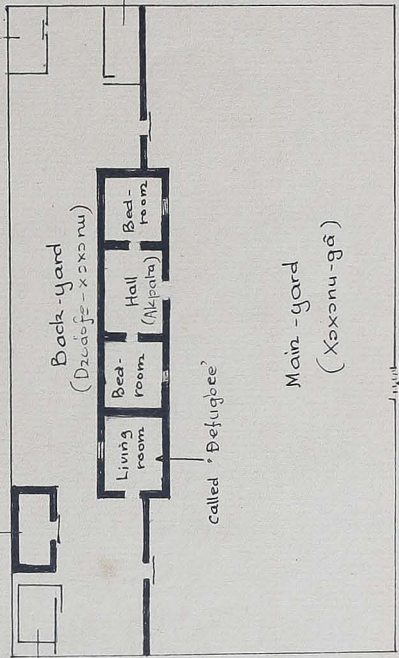 Back-yard
(Dzodoƒe-xɔxɔnu)
Living
room
Bed-
room
Hall
(Akpata)
Bed-
room
called 'Defugbee'
Main-yard
(Xɔxɔnu-gã)